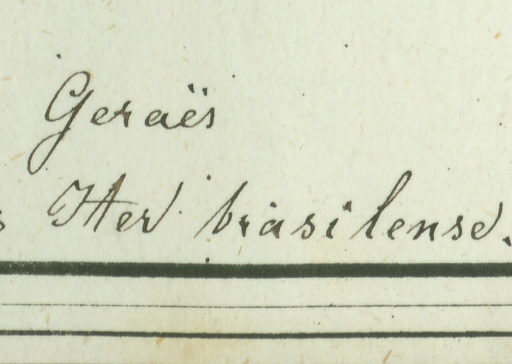 Geraës
Iter brasilense.